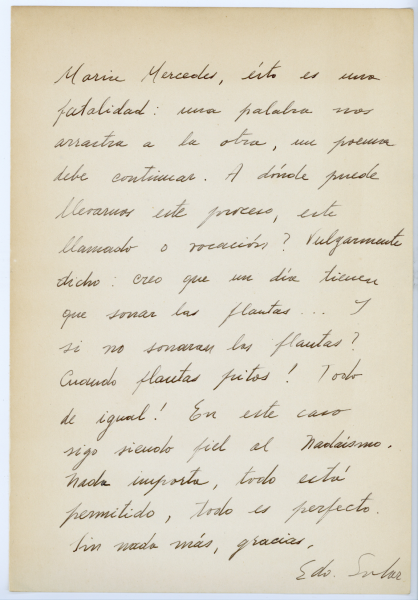 María Mercedes, ésto es una
fatalidad: una palabra nos
arrastra a la otra, un poema
debe continuar. A dónde puede
llevarnos este proceso, este
llamado o vocación? Vulgarmente
dicho: creo que un día tienen
que sonar las flautas... Y
si no sonaran las flautas?
Cuando flautas pitos! Todo
da igual! En este caso
sigo siendo fiel al Nadaísmo.
Nada importa, todo está
permitido, todo es perfecto.
Sin nada más, gracias,
Edo.